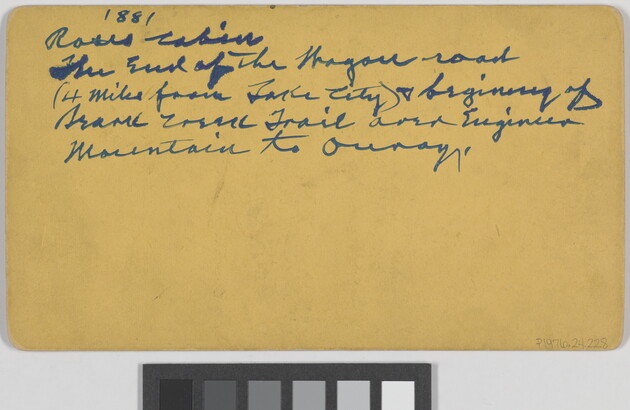 1881
Roses cabin
The End of the Wagon road
(4 Miles from Lake City) & begining of
Bear Creek Trail over Engineer
Mountain to Ouray,
P1976.24.228